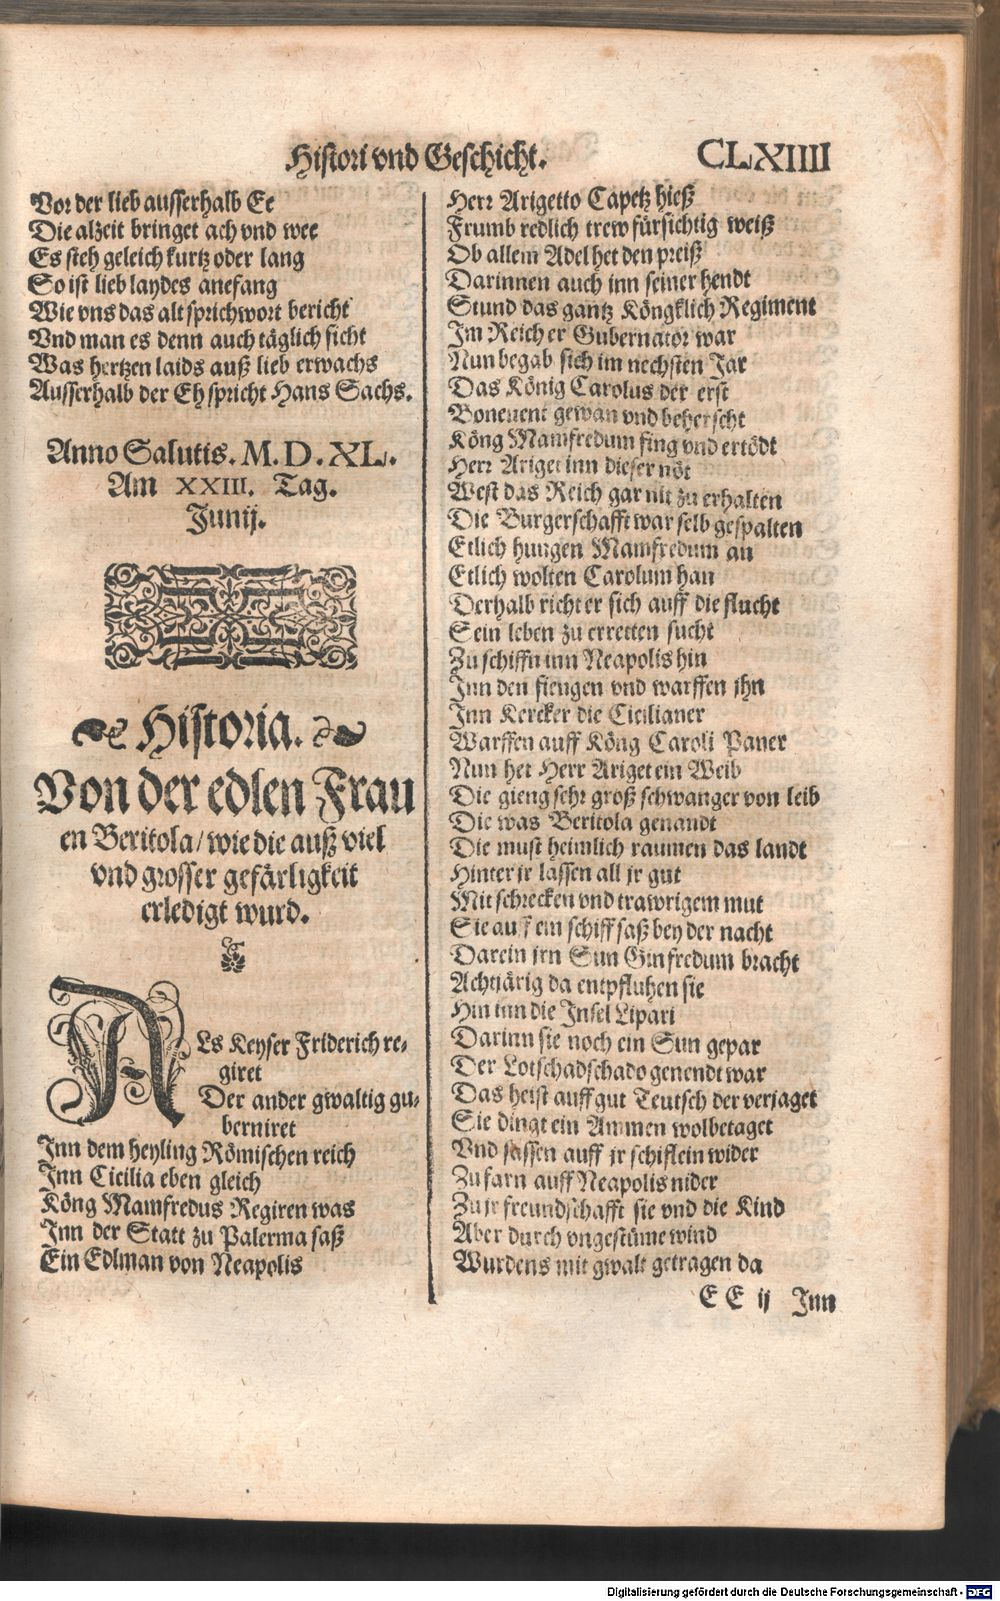 Histori vnd Geschicht. CLXIIII
Vor der lieb ausserhalb Ee
Die alzeit bringet ach vnd wee
Es steh geleich kurtz oder lang
So ist lieb laydes anefang
Wie vns das alt sprichwort bericht
Vnd man es denn auch täglich sicht
Was hertzen laids auß lieb erwachs
Ausserhalb der Eh spricht Hans Sachs.
Anno Salutis. M. D. XL.
Am XXIII. Tag.
Junij.
Historia.
Von der edlen Frau
en Beritola/ wie die auß viel
vnd grosser gefärligkeit
erledigt wurd.
ALs Keyser Friderich re-
giret
Der ander gwaltig gu-
berniret
Inn dem heyling Römischen reich
Inn Cicilia eben gleich
Köng Mamfredus Regiren was
Inn der Statt zu Palerma saß
Ein Edlman von Neapolis
Herr Arigetto Capetz hieß
Frumb redlich trew fürsichtig weiß
Ob allem Adel het den preiß
Darinnen auch inn seiner hendt
Stund das gantz Köngklich Regiment
Im Reich er Gubernator war
Nun begab sich im nechsten Jar
Das König Carolus der erst
Boneuent gewan vnd beherscht
Köng Mamfredum fing vnd ertödt
Herr Ariget inn dieser nöt
West das Reich gar nit zu erhalten
Die Burgerschafft war selb gespalten
Etlich hungen Mamfredum an
Etlich wolten Carolum han
Derhalb richt er sich auff die flucht
Sein leben zu erretten sucht
Zu schiffn inn Neapolis hin
Inn den fiengen vnd warffen jhn
Inn Kercker die Cicilianer
Warffen auff Köng Caroli Paner
Nun het Herr Ariget ein Weib
Die gieng sehr groß schwanger von leib
Die was Beritola genandt
Die must heimlich raumen das landt
Hinter jr lassen all jr gut
Mit schrecken vnd trawrigem mut
Sie auff ein schiff saß bey der nacht
Darein jrn Sun Ginfredum bracht
Achtjärig da entpfluhen sie
Hin inn die Insel Lipari
Darinn sie noch ein Sun gepar
Der Lotschadschado genendt war
Das heist auff gut Teutsch der verjaget
Sie dingt ein Ammen wolbetaget
Vnd sassen auff jr schiflein wider
Zu farn auff Neapolis nider
Zu jr freundschafft sie vnd die Kind
Aber durch vngestüme wind
Wurdens mit gwalt getragen da
E E ij Inn
Digitalisierung gefördert durch die Deutsche Forschungsgemeinschaft - DFG